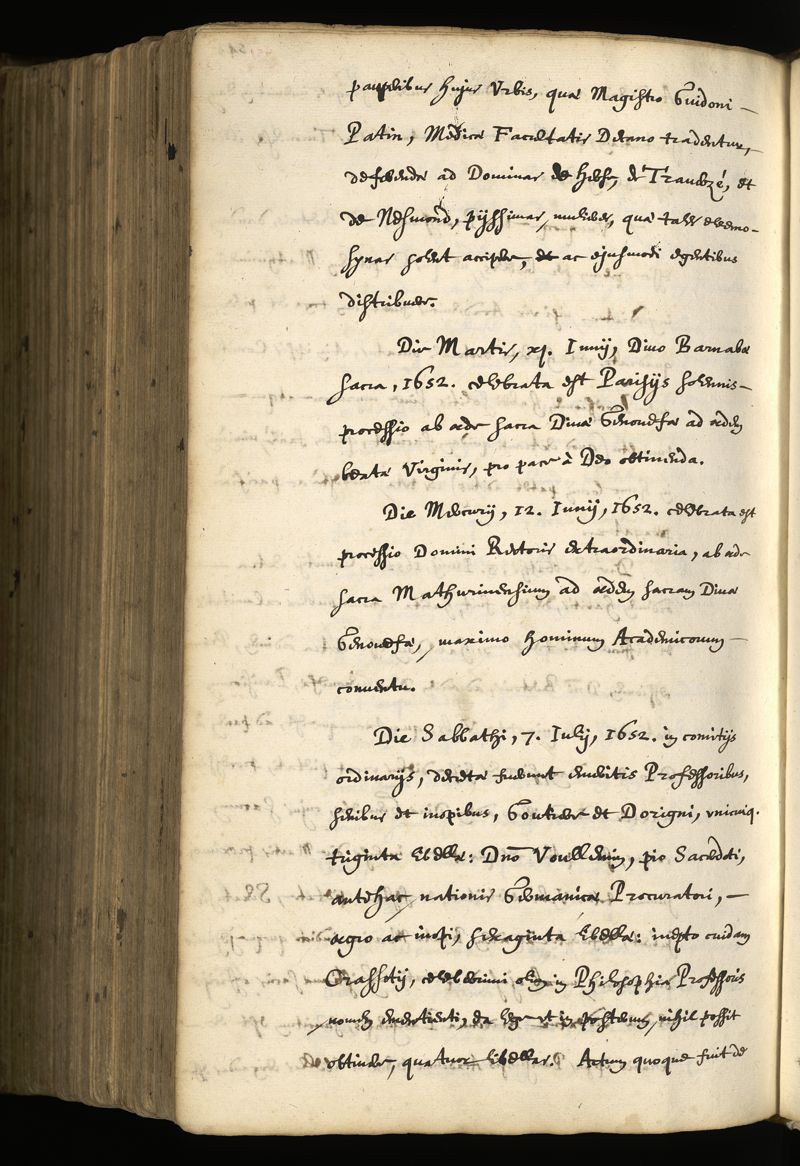 pauperibus hujus Urbis, quæ Magistro Guidoni —
Patin, Medicæ Facultatis Decano tradentur, —
deferendæ ad Dominas de Herse, de Traversé, et
de Nesmond, pijssimas mulieres, quæ tales eleemo-
synas solent accipere, et ac ejusmodi egentibus
distribuere.
Die Martis, xj. Iunij, Divo Barnabæ
sacra, 1652. celebrata est Parisijs solennis —
processio ab æde sacra Divæ Genovefæ ad ædem
beatæ Virginis, pro pace à Deo obtinenda.
Die Mercurij, 12. Iunij, 1652. celebrata est
processio Domini Rectoris extraordinaria, ab æde
sacra Mathurinensium ad ædem sacram Divæ
Genovefæ, maximo hominum Academicorum —
conventu.
Die Sabbathi, 7. Iulij, 1652. in comitijs
ordinarijs, decreta fuerunt emeritis Professoribus,
senibus et inopibus, Goutiere et Dorigni, vnicuiq.
triginta libellæ: Dno Voullemin, pio Sacerdoti,
antehac nationis Germanicæ Procuratori, —
ægro ac inopi, sexaginta libellæ: inepto cuidam
Crassotij, celeberrimi olim in Philosophia Professoris
nomen ementienti, ea lege vt in posterum nihil possit
obtinere, quatuor libellas. Actum quoque fuit de